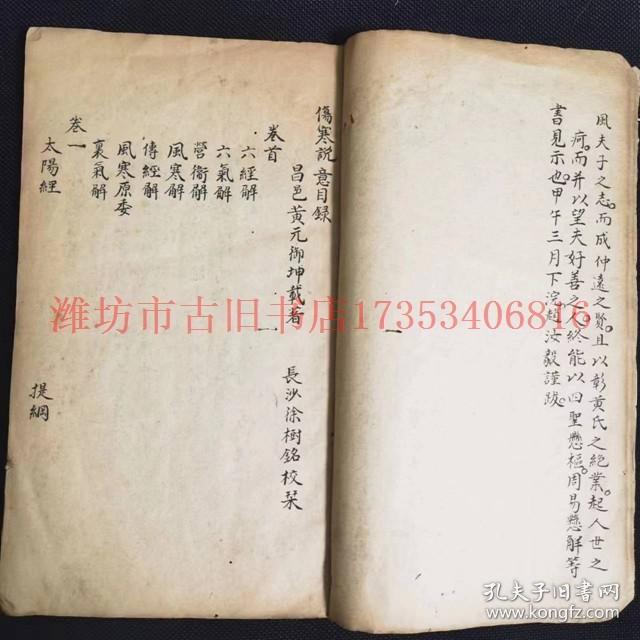 風夫子之志而成仲遠之賢且以彰黃氏之絕業起人世之
疴而并以望夫好善之人終能以四聖懸樞周易懸解等
書見示也甲午三月下浣趙汝毅謹跋
一
傷寒說意目錄
昌邑黃元御坤載著
長沙徐樹銘校栞
卷首
六經解
六氣解
營衛解
風寒解
傳經解
風寒原委
裏氣解
卷一
太陽經
提綱
一
潍坊市古旧书店17353406816
孔夫子旧书网
www.kongfz.com